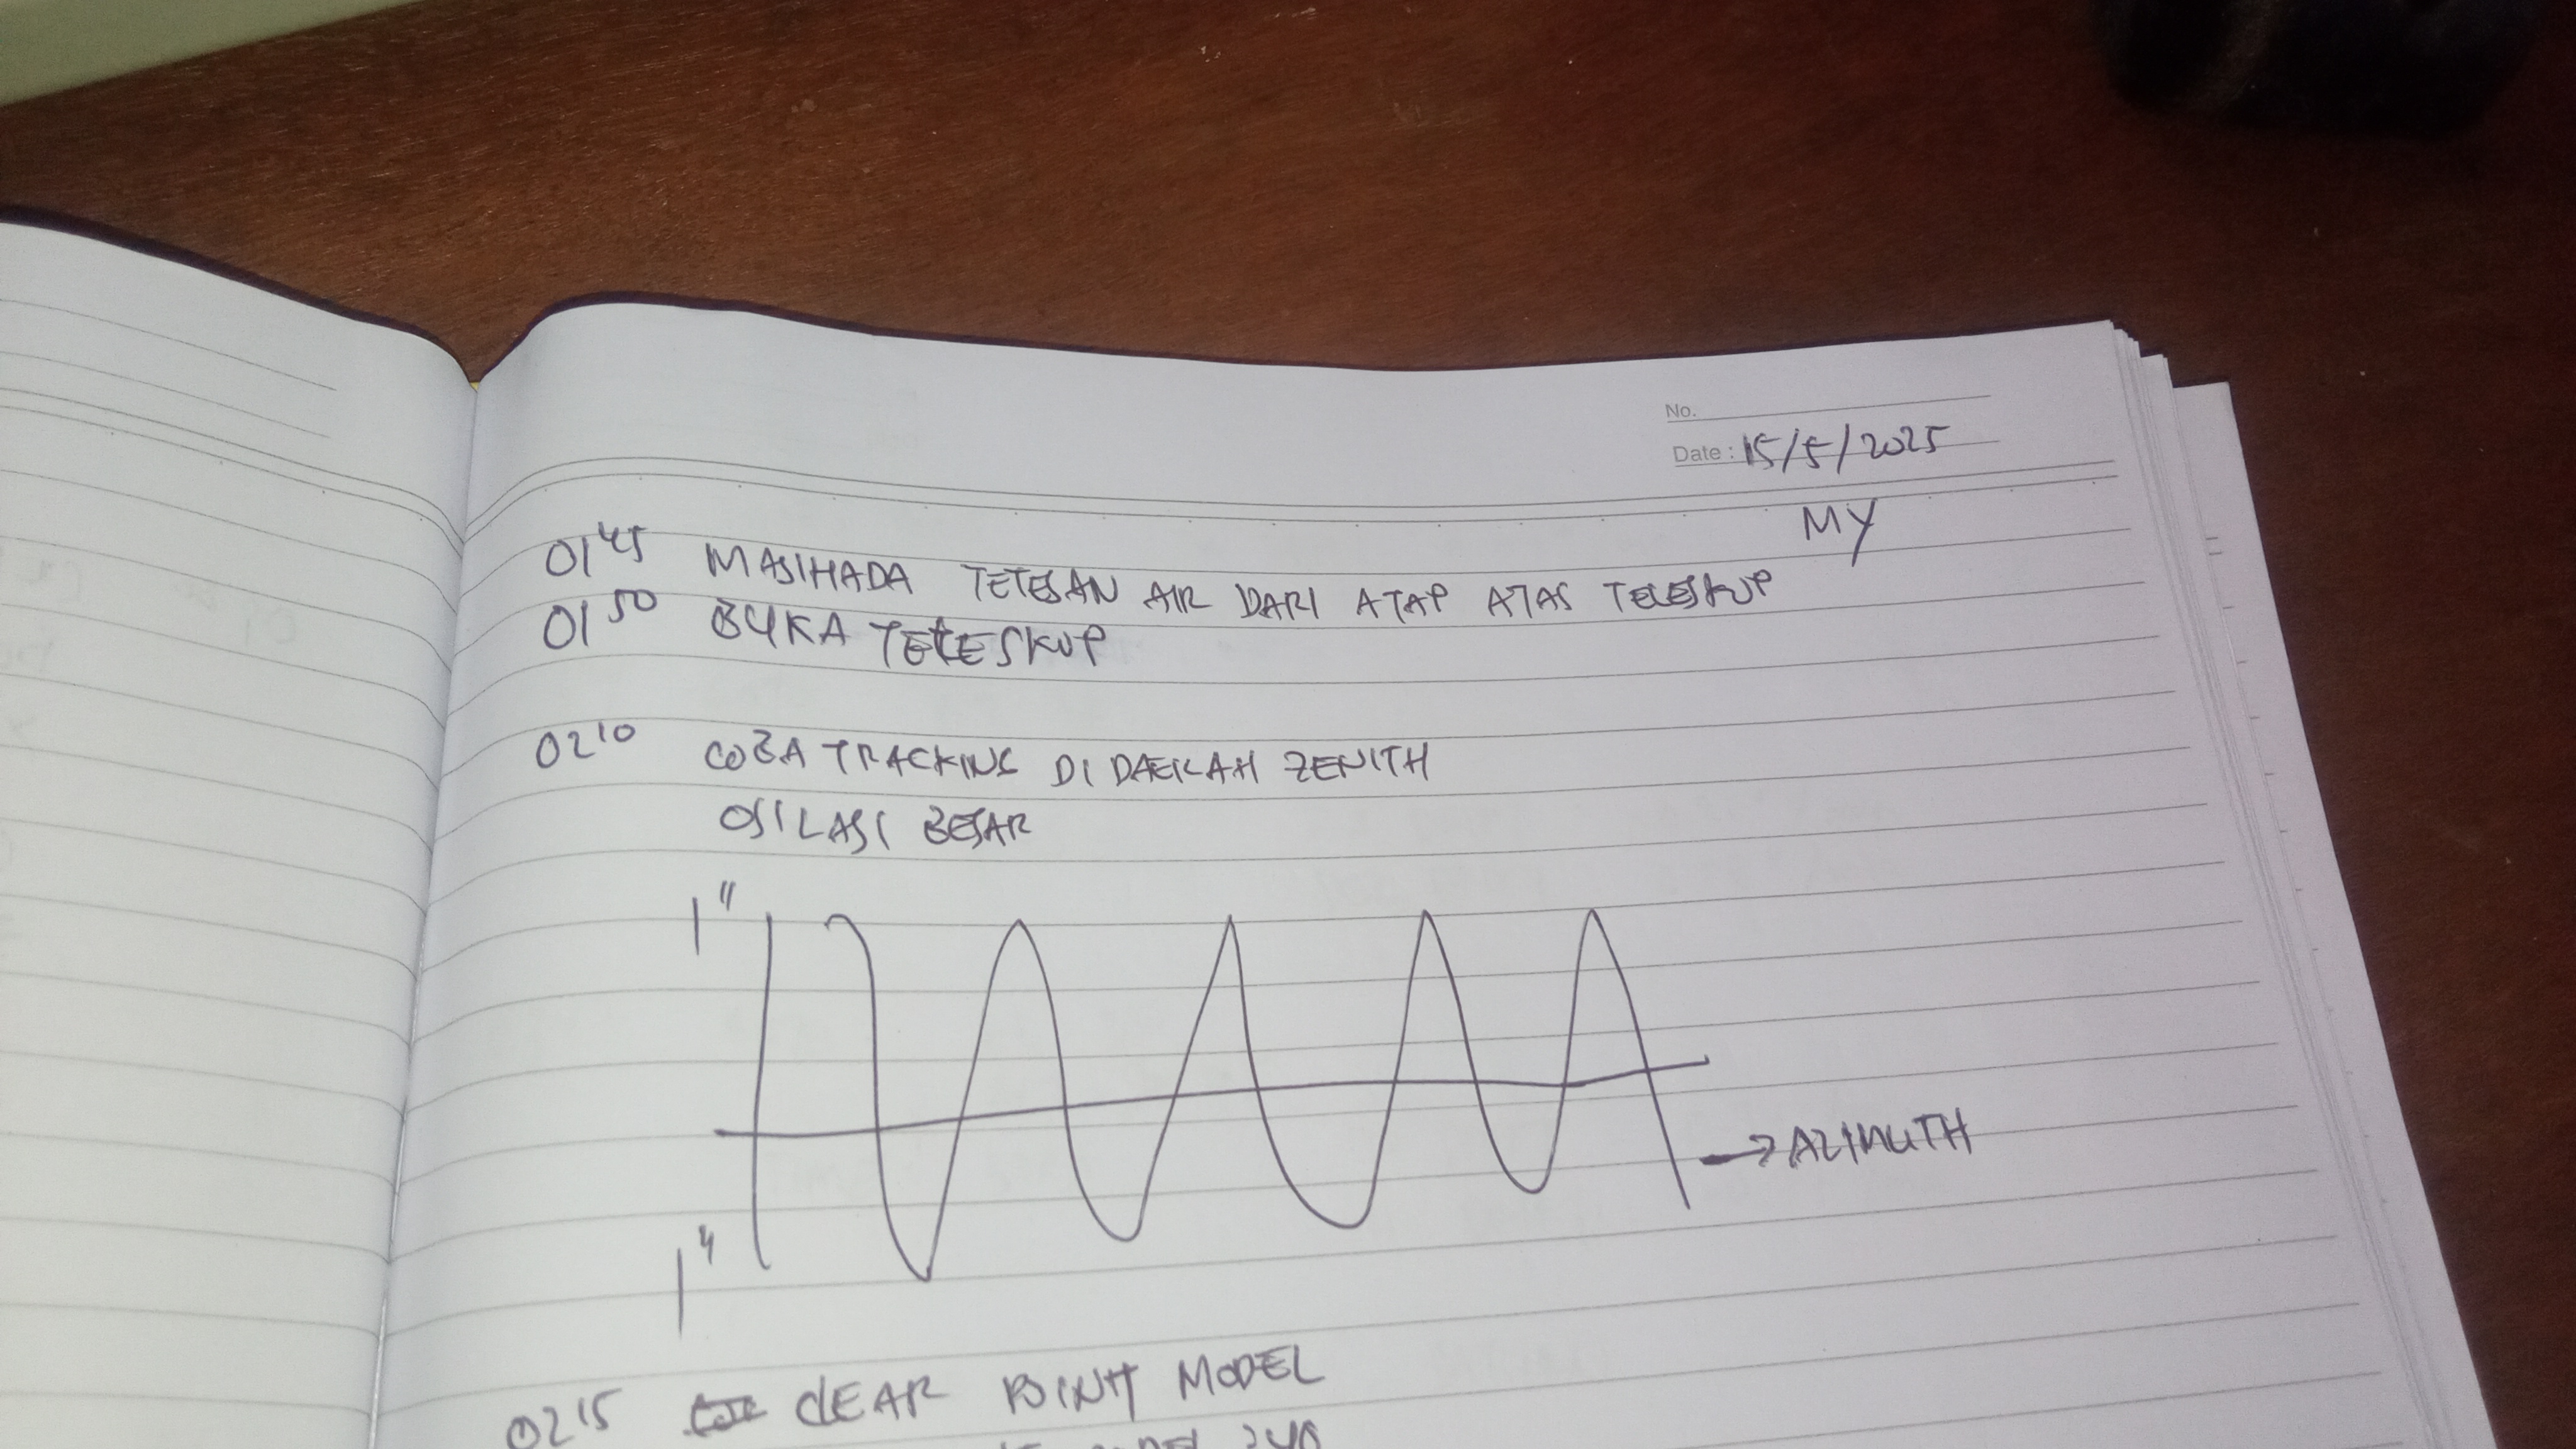 No.
Date : 15/5/2025
MY
01 45 MASIH ADA TETESAN AIR DARI ATAP ATAS TELESKUP
01 50 BUKA TELESKUP
02 10 COBA TRACKING DI DAERAH ZENITH
OSILASI BESAR
1"
→ AZIMUTH
1"
02 15 CLEAR POINT MODEL
MODEL